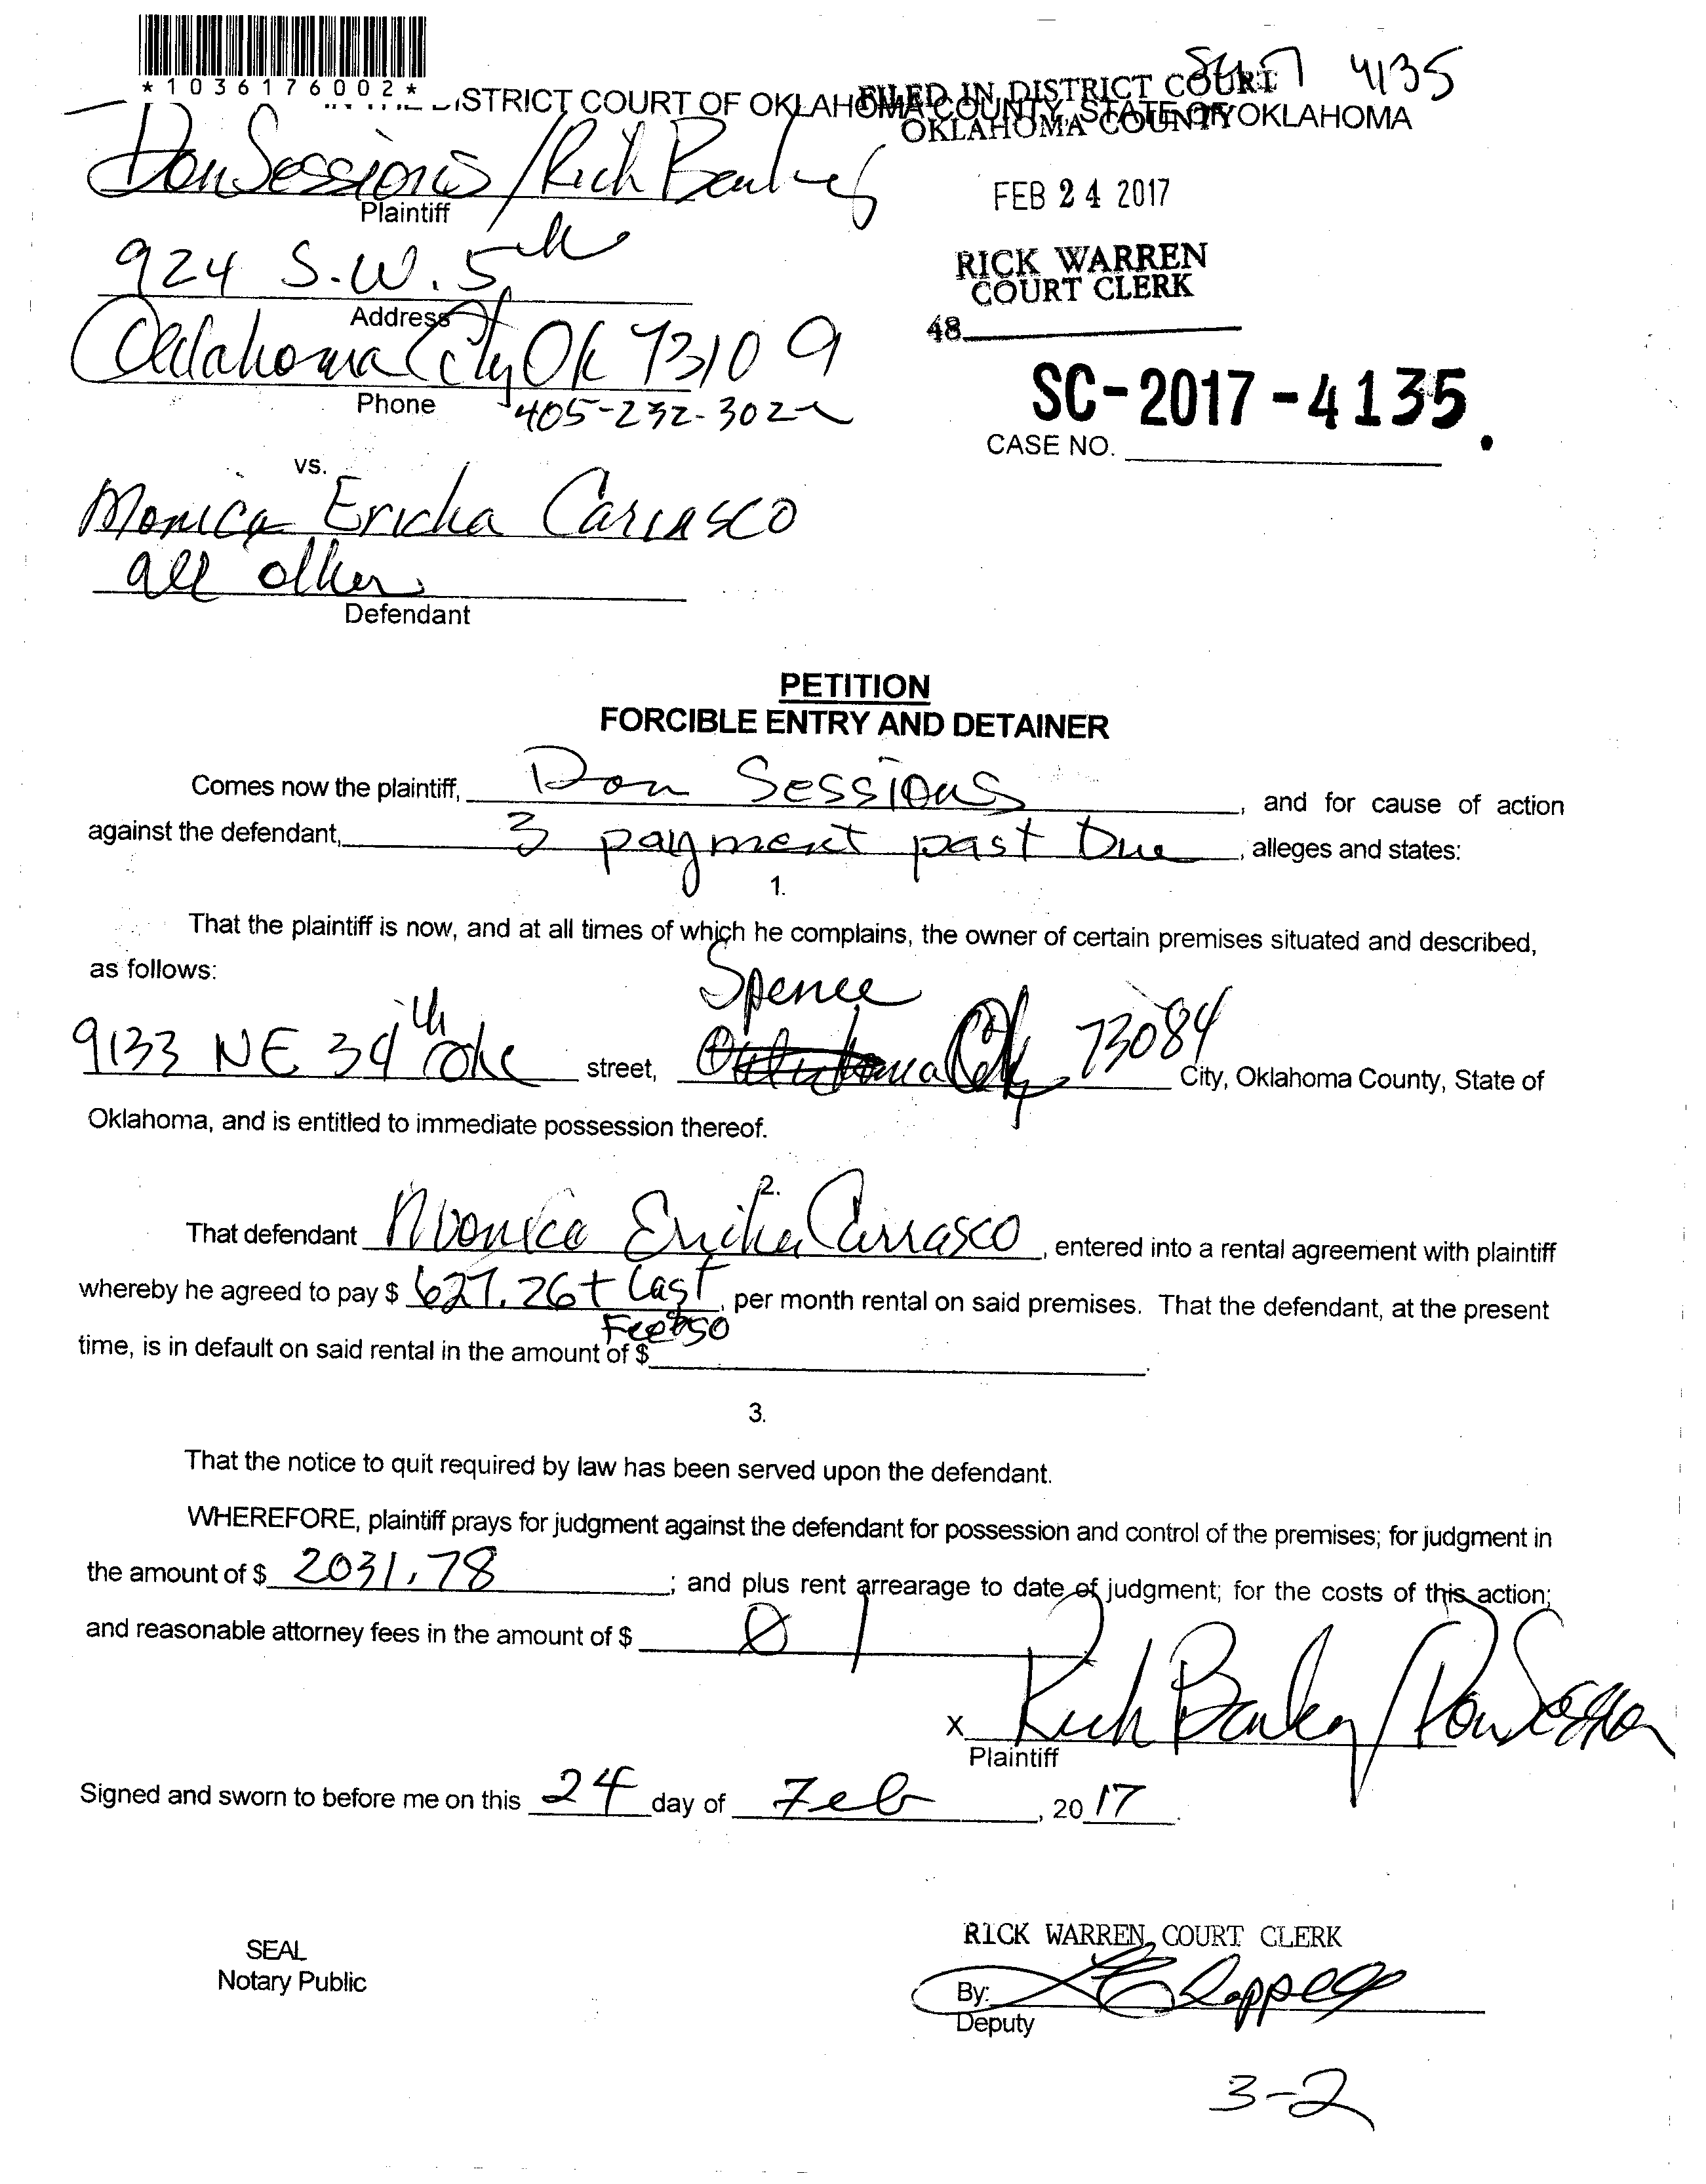 *1036176002*
SC17 4135
DISTRICT COURT OF OKLAHOMA COUNTY, STATE OF OKLAHOMA
FILED IN DISTRICT COURT
OKLAHOMA COUNTY
Don Sessions / Rich
Plaintiff
FEB 24 2017
924 S.W. 5th
Address
RICK WARREN
COURT CLERK
Oklahoma City Ok 73109
48
Phone 405-232-3022
SC-2017-4135.
CASE NO.
vs.
Monica Ericka Carrasco
all other
Defendant
PETITION
FORCIBLE ENTRY AND DETAINER
Comes now the plaintiff, Don Sessions, and for cause of action
against the defendant, 3 payment past Due, alleges and states:
1.
That the plaintiff is now, and at all times of which he complains, the owner of certain premises situated and described,
as follows:
Spence
9133 NE 34th Okc street, Oklahoma City 73084 City, Oklahoma County, State of
Oklahoma, and is entitled to immediate possession thereof.
2.
That defendant Monica Ericka Carrasco, entered into a rental agreement with plaintiff
whereby he agreed to pay $ 627.26 + Last, per month rental on said premises. That the defendant, at the present
Fee $50
time, is in default on said rental in the amount of $ .
3.
That the notice to quit required by law has been served upon the defendant.
WHEREFORE, plaintiff prays for judgment against the defendant for possession and control of the premises; for judgment in
the amount of $ 2031.78; and plus rent arrearage to date of judgment; for the costs of this action;
and reasonable attorney fees in the amount of $ 0
X Rich / Don Sessions
Plaintiff
Signed and sworn to before me on this 24 day of Feb, 2017.
SEAL
Notary Public
RICK WARREN, COURT CLERK
By:
Deputy
3-2